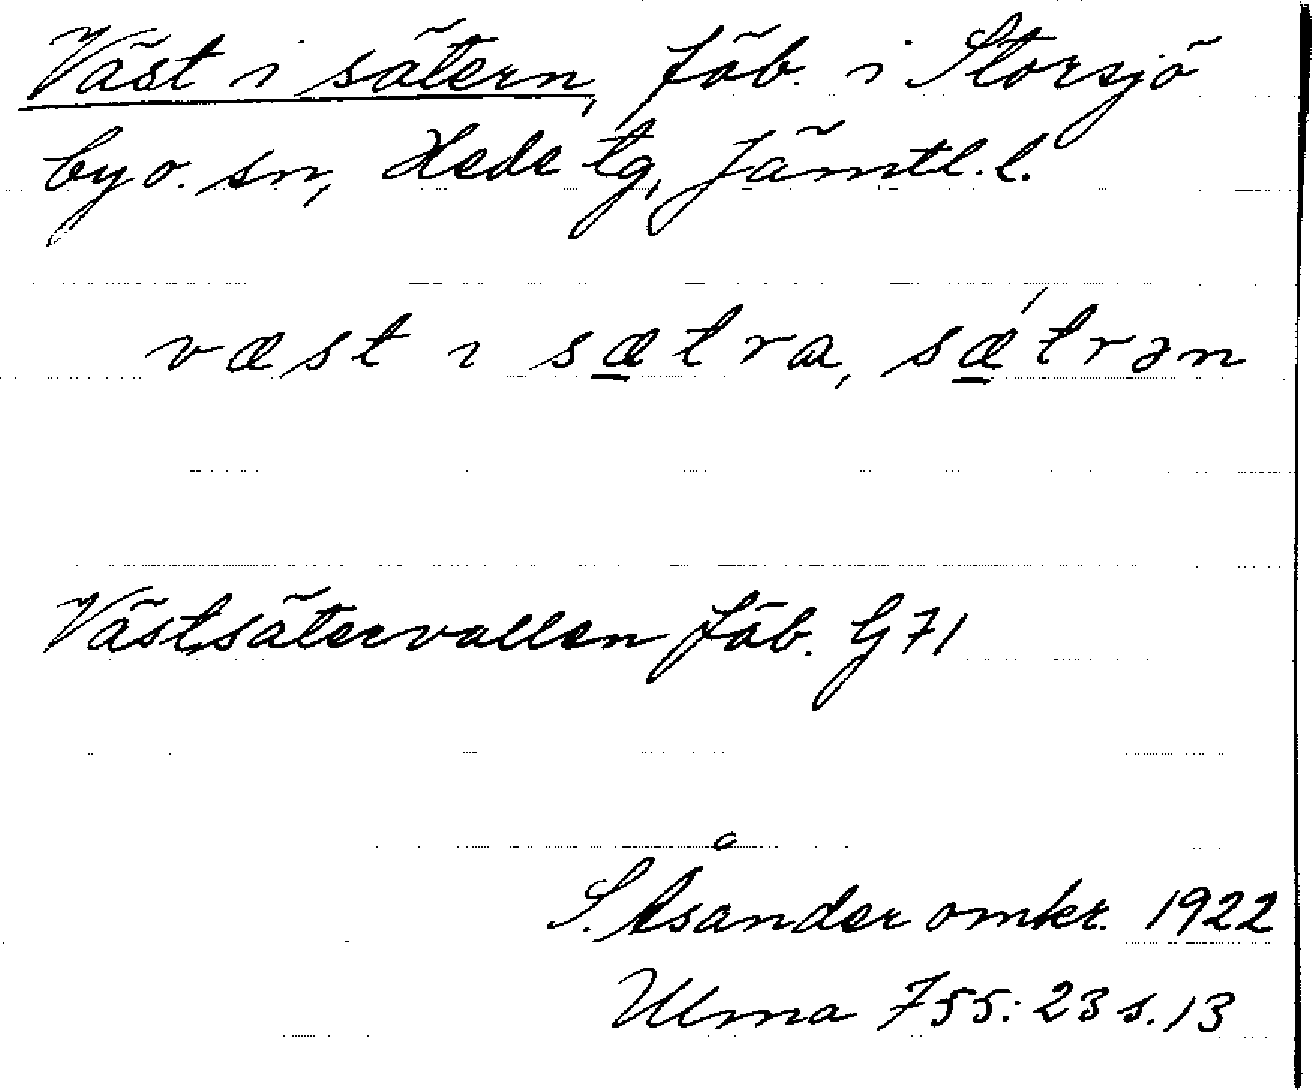 Väst i sätern, fäb. i Storsjö
by o. sn, Hede tg, Jämtl. l.
væst i sætra, sǽtrən
Västsätervallen fäb. G 71
S. Åsander omkr. 1922
Ulma 755:23 s. 13